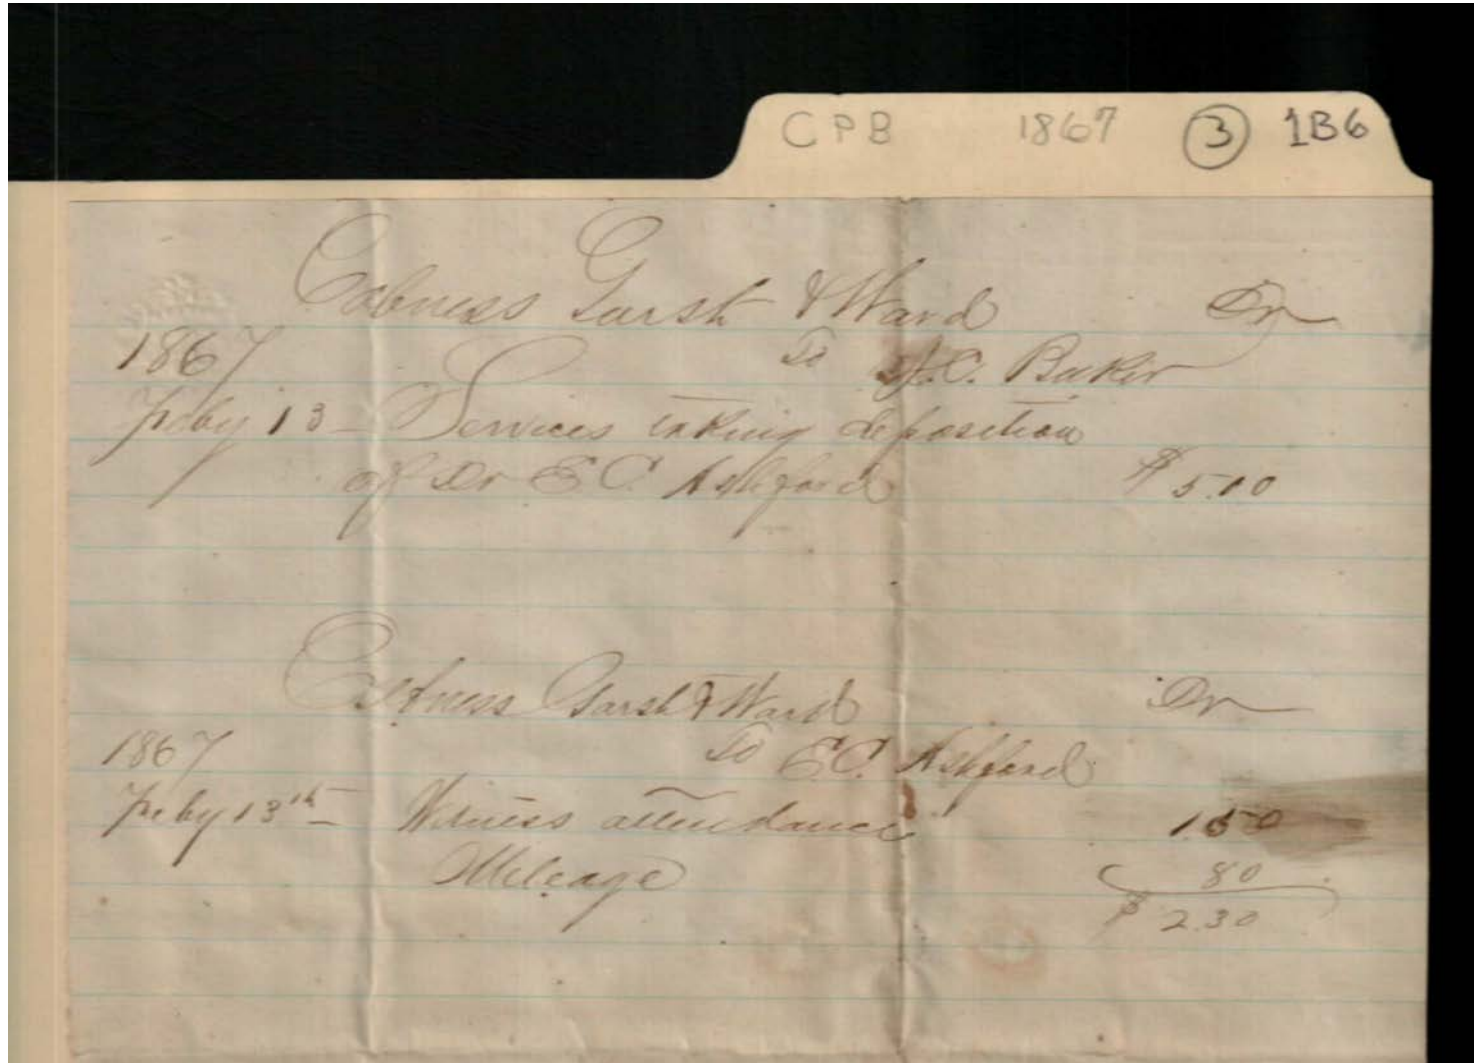 CPB 1867 3 1B6
Cabness Garsh & Ward Dr
1867 To J.C. Baker
Feby 13 – Services taking deposition
of Dr E C. Ashford $ 5.00
Cabness Garsh & Ward Dr
1867 To E C. Ashford
Feby 13th – Witness attendance 1.50
Mileage 80
$ 2.30